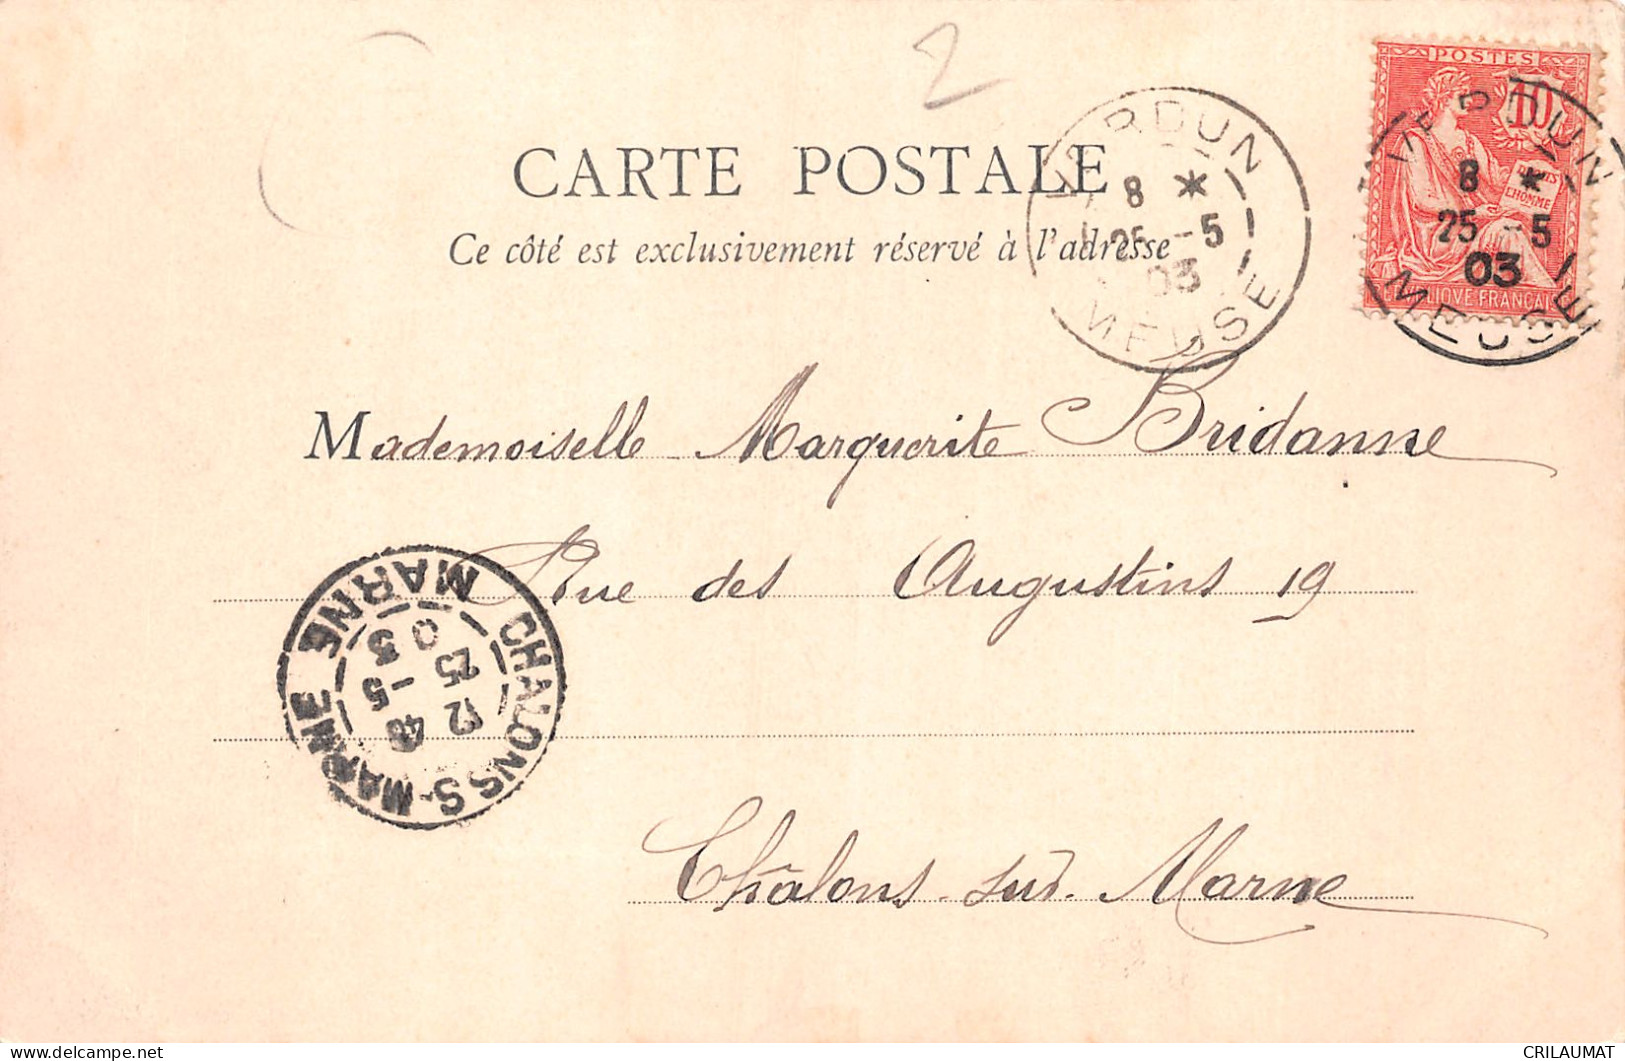 2
CARTE POSTALE
Ce côté est exclusivement réservé à l'adresse
VERDUN
8 *
25 -5
03
MEUSE
POSTES
10
DROITS
L'HOMME
VERDUN
8 *
25 -5
03
MEUSE
Mademoiselle Marguerite Bridanne
Rue des Augustins 19
Châlons-sur-Marne
CHALONS S-MARNE
MARNE
12 40
25 -5
03
CRILAUMAT